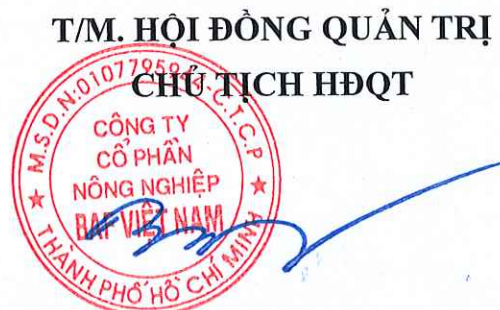 T/M. HỘI ĐỒNG QUẢN TRỊ
CHỦ TỊCH HĐQT
M.S.D.N:
C.T.C.P
CÔNG TY
CỔ PHẦN
NÔNG NGHIỆP
BAF VIỆT NAM
THÀNH PHỐ HỒ CHÍ MINH